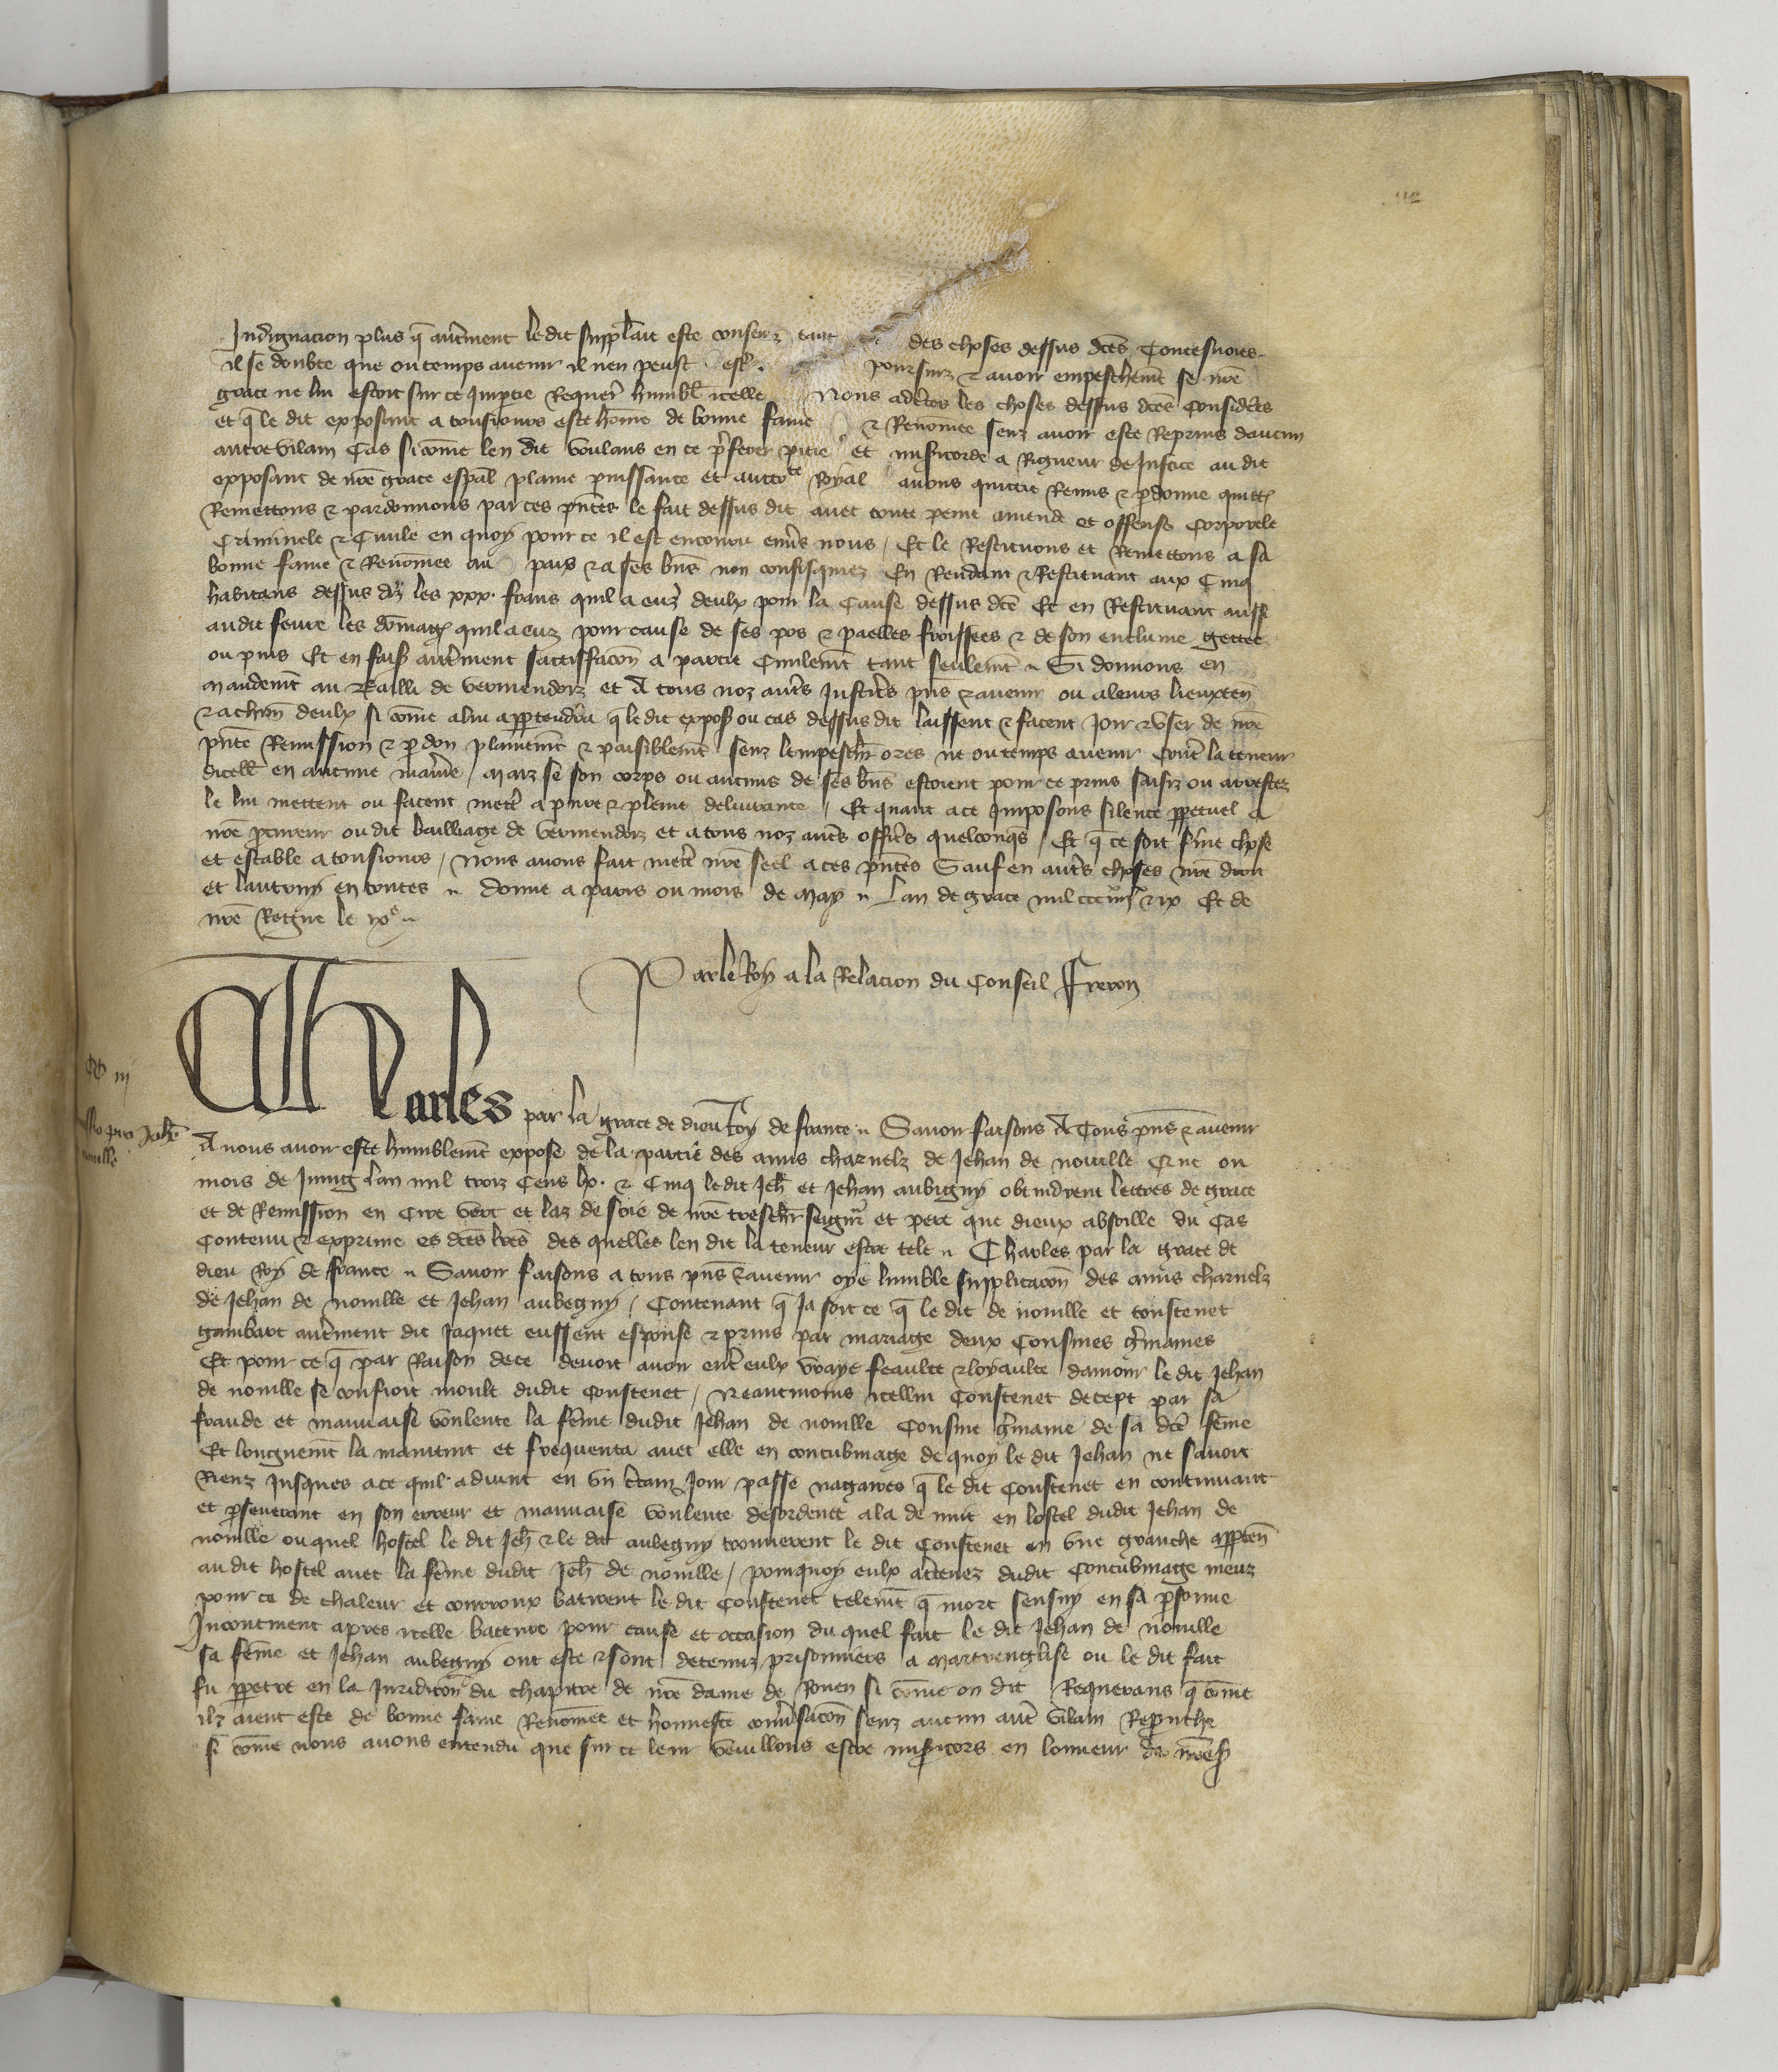 Indignacion plus q̄ aut̄ment le dit suppl̄ait este conseu tant des choses dessus dc̄es Toutesuoies
il se doubte que ou temps auenir il nen peust est̄ poursuiz & auoir empeschem̄t se nr̄e
grace ne lui estoit sur ce Impartie Requer̄ humbl̄ icelle Nous adc̄ertes les choses dessus dc̄es Considēes
et q̄ le dit exposant a tousiours este hōme de bonne fame & Renōmee senz auoir este Reprins daucun
autre vilain Cas si cōme len dit voulans en ce p̄ferer pitie et mis̄icorde a Rigueur de Justice au dit
exposant de nr̄e grace esp̄al plaine puissance et auctote Royal auons quictie Remis & p̄donne quitt̄
Remettons & pardonnons par ces pn̄tes le fait dessus dit auec toute peine amende et offense Corporele
Criminele & Ciuile en quoy pour ce il est encouru enūs nous / Et le Restituons et Remettons a sa
bonne fame & Renōmee au pais & a ses bn̄s non confisquiez En Rendant & Restituant aux Cinq
habitans dessus dz̄ les xxx. frans quil a euz deulx pour la Cause dessus dc̄e Et en Restituant aussi
au dit feure les dōmaḡ quil a euz pour cause de ses pos & paelles froissees & de son enclume gettee
ou puis Et en fais̄ aut̄ment sattisfacōn a partie Ciuilem̄t tant seulem̄t Si donnons en
mandem̄t au Bailli de vermendoiz et A tous noz aut̄s Justic̄es pn̄s & auenir ou a leurs lieuxten̄
& a chūn deulx si cōme a lui app̄tendra q̄ le dit expos̄ ou cas dessus dit laissent & facent Joir & vser de nr̄e
pn̄te Remission & p̄don plainem̄t & paisiblem̄t senz lempeschier̄ ores ne ou temps auenir Cont̄ la teneur
dicell̄ en aucune man̄ie / Maiz se son corps ou aucuns de ses bn̄s estoient pour ce prins saisiz ou arrestez
le lui mettent ou facent mett̄ a plaine deliurance / Et quant a ce Imposons silence pp̄etuel a
nr̄e p̄cureur ou dit bailliage de vermendoiz et a tous noz aut̄s offic̄rs quelconq̄s / Et q̄ ce soit fērme chose
et estable a tousiours / Nous auons fait mett̄ nr̄e seel a ces pn̄tes Sauf en aut̄s choses nr̄e droit
et lautruy en toutes Donne a paris ou mois de May Lan de grace mil ccc iiiixx & ix Et de
nr̄e Regne le ixe
Par le Roy a la Relacion du Conseil Freron
Charles par la grace de dieu Roy de france Sauoir faisons A Tous pn̄s & auenir
A nous auoir este humblem̄t expose de la partie des amis charnelz de Jehan de nouille Que ou
mois de Juing Lan mil troiz Cens lx. & Cinq le dit Jeh̄ et Jehan aubigny obtindrent lettres de grace
et de Remission en Cire vert et laz de soie de nr̄e treschier̄ seign̄r et pere que dieux absoille du Cas
Contenu & exprime es dc̄es lr̄es des quelles len dit la teneur estre tele Charles par la grace de
dieu Roy de france Sauoir faisons a tous pn̄s & auenir oye lumble supplicacōn des amis charnelz
de Jehan de nouille et Jehan aubegny / Contenant q̄ Ja soit ce q̄ le dit de nouille et Coustenet
gambart aut̄ment dit Jaquet eussent espouse & prins par mariage deux Cousines ḡmaines
Et pour ce q̄ par Raison de ce deuoit auoir ent̄ eulx vraye feaulte & loyaulte damour le dit Jehan
de nouille se confioit moult dudit Coustenet / Neantmoins icellui Coustenet decept par sa
fraude et mauuaise voulente la fēme dudit Jehan de nouille Cousine ḡmaine de sa dc̄e fēme
Et longuem̄t la maintint et frequenta auec elle en concubinage de quoy le dit Jehan ne sauoit
Rienz Jusques a ce quil aduint en vn c̄tain Jour passe nagaires q̄ le dit Coustenet en continuant
et p̄seuerant en son erreur et mauuaise voulente desordenee ala de nuit en lostel dudit Jehan de
nouille ou quel hostel le dit Jeh̄ & le dit aubegny trouuerent le dit Coustenet en vne granche app̄ten̄
au dit hostel auec la fēme dudit Jeh̄ de nouille / pourquoy eulx actenez dudit Concubinage meuz
pour ce de chaleur et courroux batirent le dit Coustenet telem̄t q̄ mort sensuy en sa p̄sonne
Incontinent apres icelle bateure pour cause et occasion du quel fait le dit Jehan de nouille
sa fēme et Jehan aubegny ont este & sont detenuz prisonniers a Martrenglise ou le dit fait
fu pp̄etre en la Juridicōn du chapitre de nr̄e dame de Rouen si cōme on dit Requerans q̄ cōme
ilz aient este de bonne fame Renōmee et honneste conūsacōn senz aucun aut̄ vilain Reprouche
si cōme nous auons entendu que sur ce leur veuillons estre mis̄icors en lonneur de nr̄es